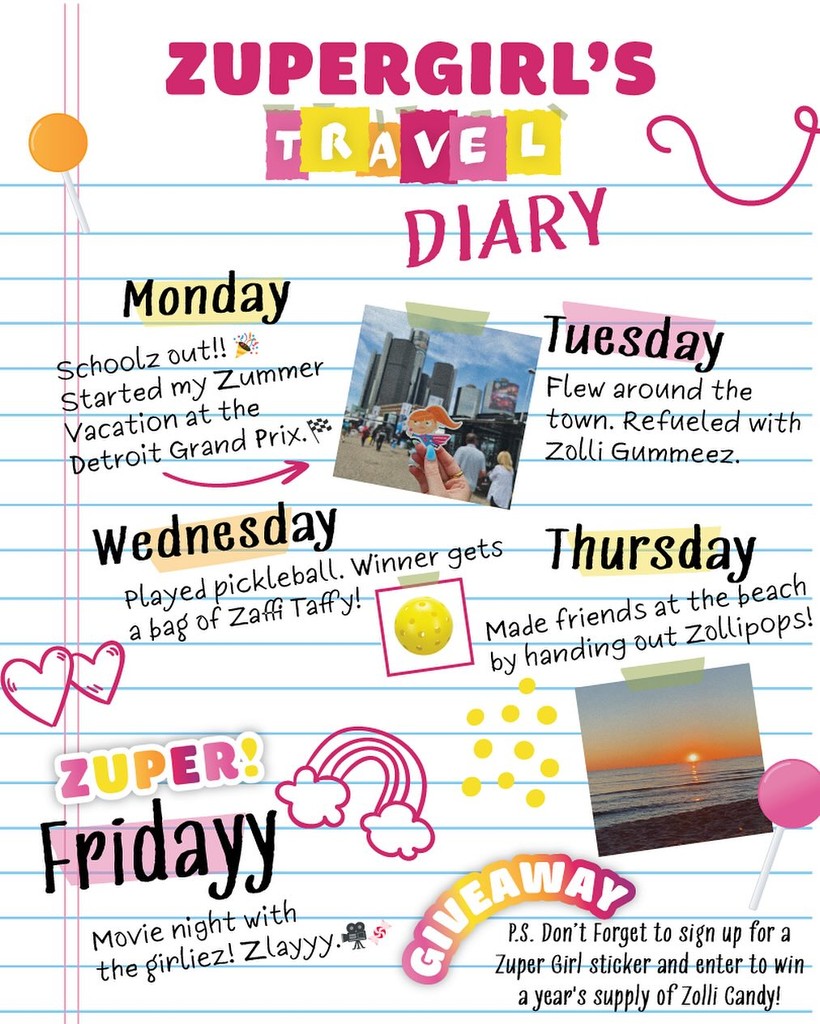 ZUPERGIRL'S
TRAVEL
DIARY
Monday
Schoolz out!! 🎉
Started my Zummer
Vacation at the
Detroit Grand Prix.🏁
Tuesday
Flew around the
town. Refueled with
Zolli Gummeez.
Wednesday
Played pickleball. Winner gets
a bag of Zaffi Taffy!
Thursday
Made friends at the beach
by handing out Zollipops!
ZUPER!
Fridayy
Movie night with
the girliez! Zlayyy.🎥🍬
GIVEAWAY
P.S. Don't Forget to sign up for a
Zuper Girl sticker and enter to win
a year's supply of Zolli Candy!